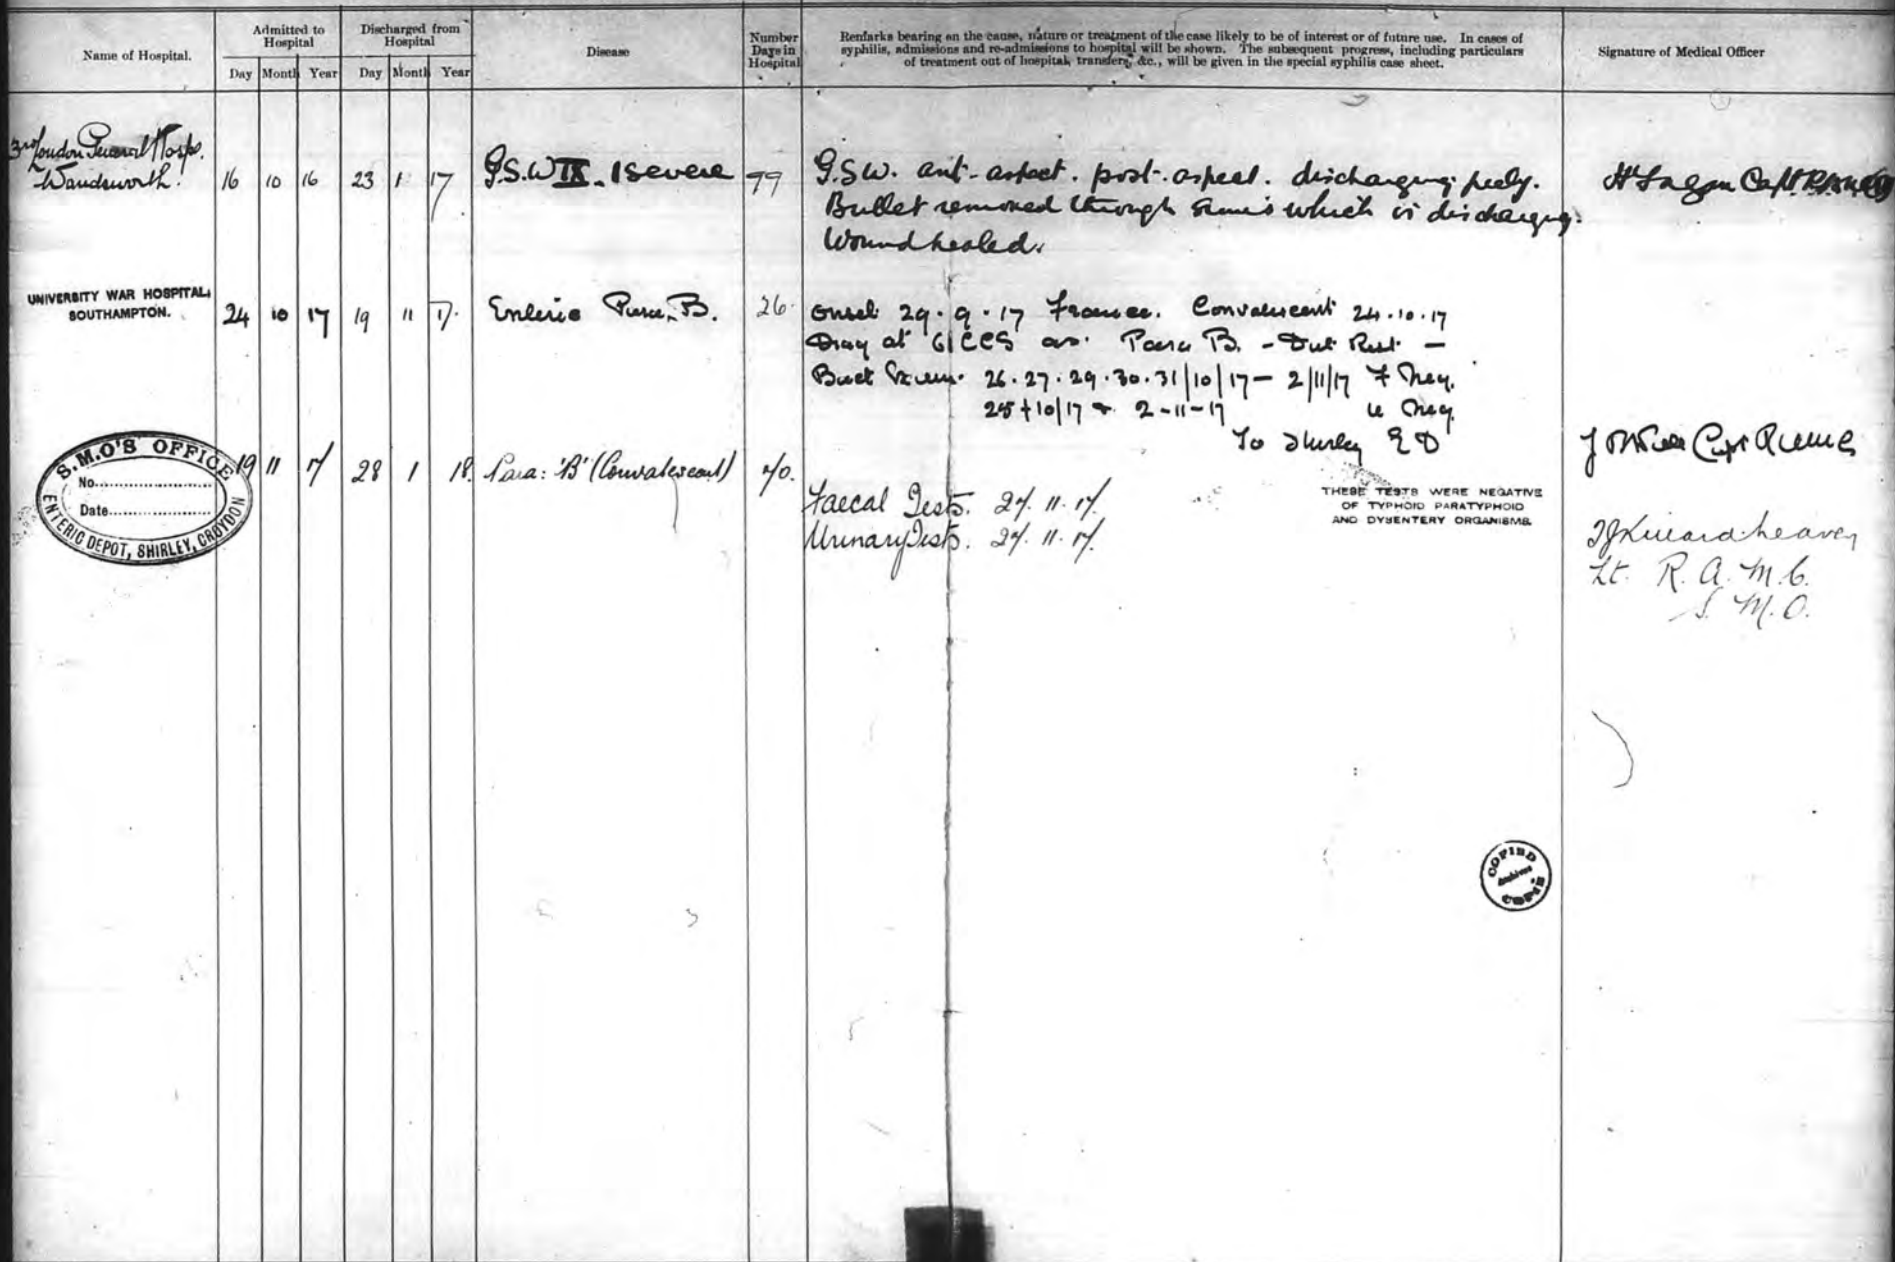 Name of Hospital.
Admitted to Hospital
Day Month Year
Discharged from Hospital
Day Month Year
Disease
Number Days in Hospital
Remarks bearing on the cause, nature or treatment of the case likely to be of interest or of future use. In cases of
syphilis, admissions and re-admissions to hospital will be shown. The subsequent progress, including particulars
of treatment out of hospital, transfers, &c., will be given in the special syphilis case sheet.
Signature of Medical Officer
3rd London General Hosp.
Wandsworth.
16 10 16 23 1 17 G.S.W IX. 1 severe 99
G.S.W. ant. aspect. post. aspect. discharging freely.
Bullet removed through sinus which is discharging.
Wound healed.
Capt. R.A.M.C.
UNIVERSITY WAR HOSPITAL,
SOUTHAMPTON.
24 10 17 19 11 17. Enteric Para. B. 26
Onset 29.9.17 France. Convalescent 24.10.17
Diag at 61 CCS as Para B. -
Bact Exam. 26.27.29.30.31/10/17 - 2/11/17 F Neg.
10/17 & 2-11-17 U Neg.
To Shirley E D
Capt
S.M.O'S OFFICE
No.
Date
ENTERIC DEPOT, SHIRLEY, CROYDON
19 11 17 28 1 18. Para: 'B' (Convalescent) 70.
Faecal Tests. 27.11.17.
Urinary Tests. 27.11.17.
THESE TESTS WERE NEGATIVE
OF TYPHOID PARATYPHOID
AND DYSENTERY ORGANISMS.
Lt. R.A.M.C.
S.M.O.
COPIED
Archives
COPIED